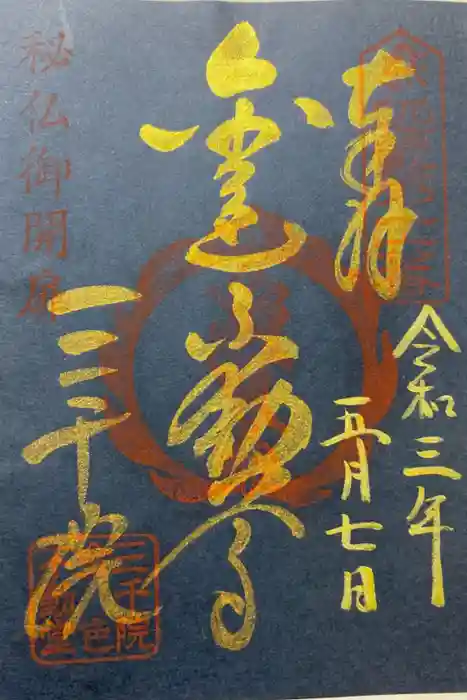 奉拝
令和三年
五月七日
金色不動尊
秘仏御開扉
三千院
三千院